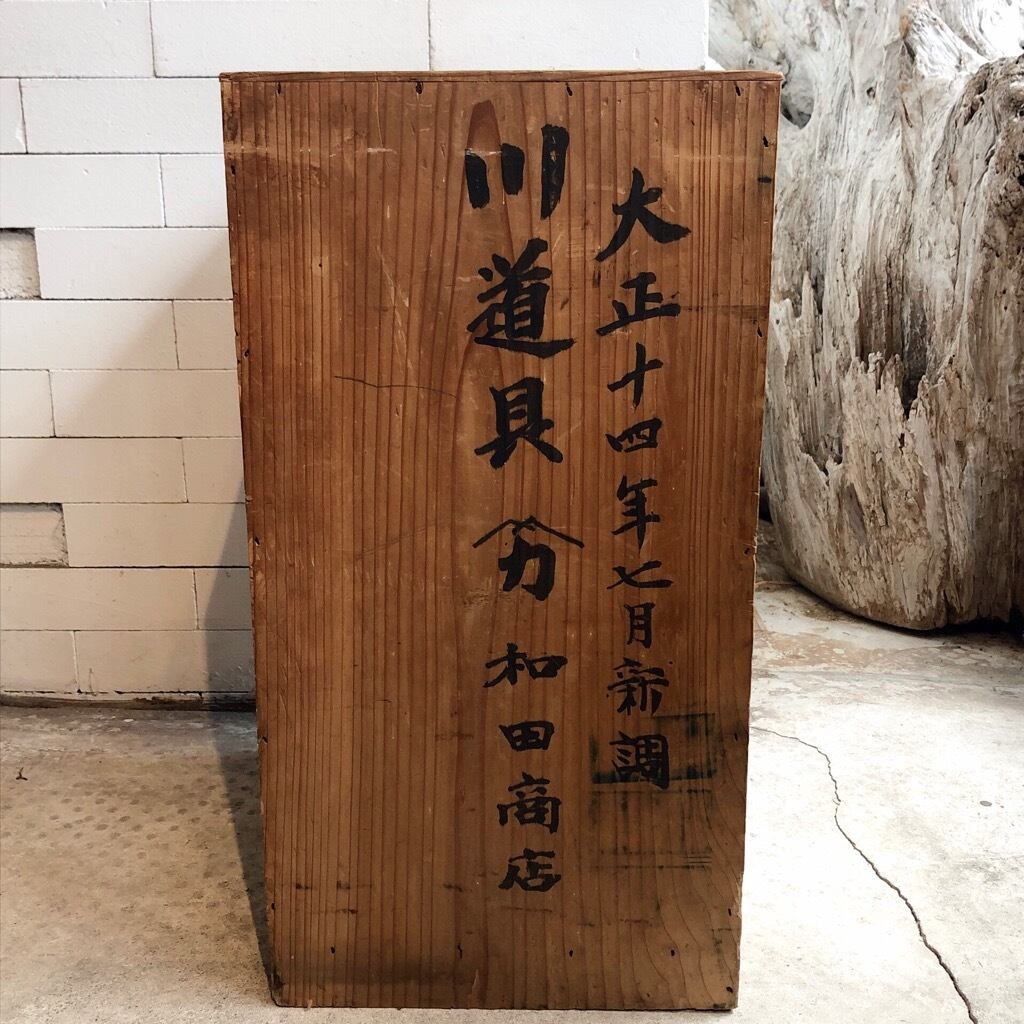 大正十四年七月新調
川道具 力 和田商店